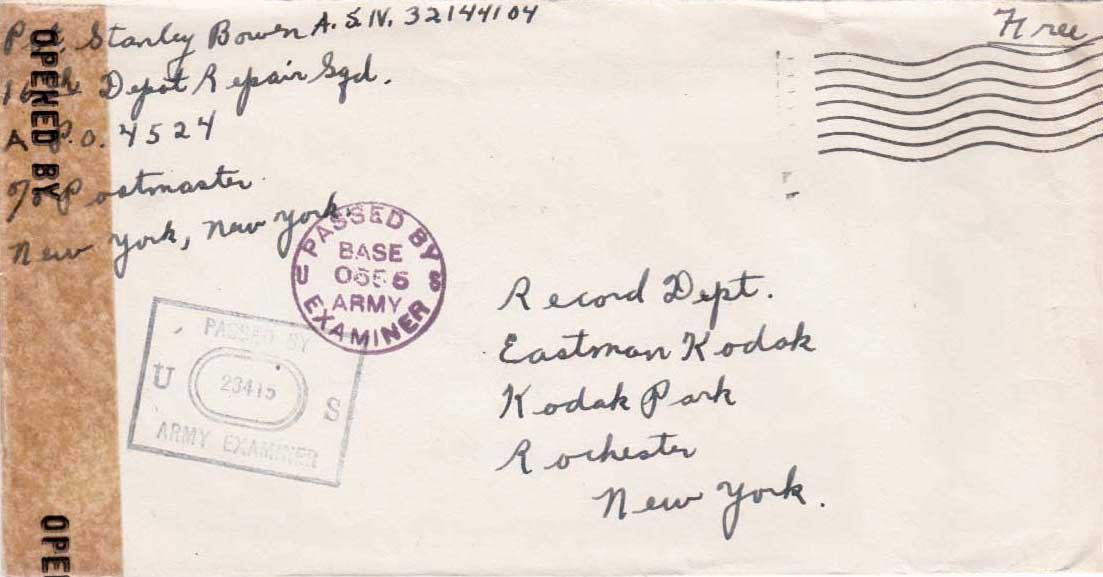 Free
Pvt Stanley Bowen A.S.N. 32144104
16th Depot Repair Sqd.
A.P.O. 4524
% Postmaster
New York, New York
OPENED BY
OPE
PASSED BY
BASE
U 0656 S
ARMY
EXAMINER
PASSED BY
U 23415 S
ARMY EXAMINER
Record Dept.
Eastman Kodak
Kodak Park
Rochester
New York.